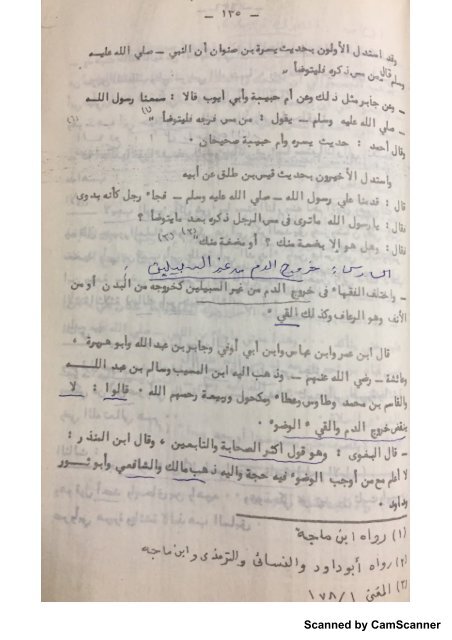 – ١٣٥ –
وقد استدل الأولون بحديث يسرة بن صنوان أن النبي – صلي الله عليه
وسلم قال " من مس ذكره فليتوضأ "
وعن جابر مثل ذلك وعن أم حبيبة وأبي أيوب قالا : سمعنا رسول اللــه
– صلي الله عليه وسلم – يقول : من مس فرجه فليتوضأ " (١)
وقال أحمد : حديث يسره وأم حبيبة صحيحان ٠
واستدل الأخيرون بحديث قيس بن طلق عن أبيه
قال : قدمنا علي رسول الله – صلي الله عليه وسلم – فجاء رجل كأنه بدوى
فقال : يا رسول الله ماترى فى مس الرجل ذكره بعد مايتوضأ ؟
فقال : وهل هو إلا بضعة منك ؟ أو مضغة منك " (٢) (٣)
خروج الدم من غير السبيلين :
– واختلف الفقهاء فى خروج الدم من غير السبيلين كخروجه من البدن أو من
الأنف وهو الرعاف وكذلك القيء
قال ابن عمر وابن عباس وابن أبي أوفي وجابر بن عبد الله وأبو هريرة ،
وعائشة – رضي الله عنهم – وذهب اليه ابن المسيب وسالم بن عبد اللــــه
والقاسم بن محمد وطاوس وعطاء ومكحول وربيعة رحمهم الله ٠ قالوا : لا
ينقض خروج الدم والقيء الوضوء ٠
– قال البغوى : وهو قول أكثر الصحابة والتابعين ، وقال ابن المنذر :
لا أعلم مع من أوجب الوضوء فيه حجة واليه ذهب مالك والشافعي وأبو ثــور
وداود ٠
(١) رواه ابن ماجة
(٢) رواه أبو داود والنسائى والترمذى وابن ماجه
(٣) المغنى ١/ ١٧٨
Scanned by CamScanner